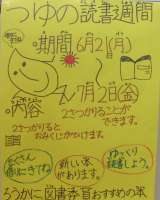 つゆの読書週間
・期間 6月21(月)
〜7月2日(金)
・内容 2さつかりることが
できます。
2さつかりると
おみくじがひけます。
たくさん
借りにきてね
新しい本
があります。
ゆっくり
読書しよう。
ろうかに図書委員おすすめの本